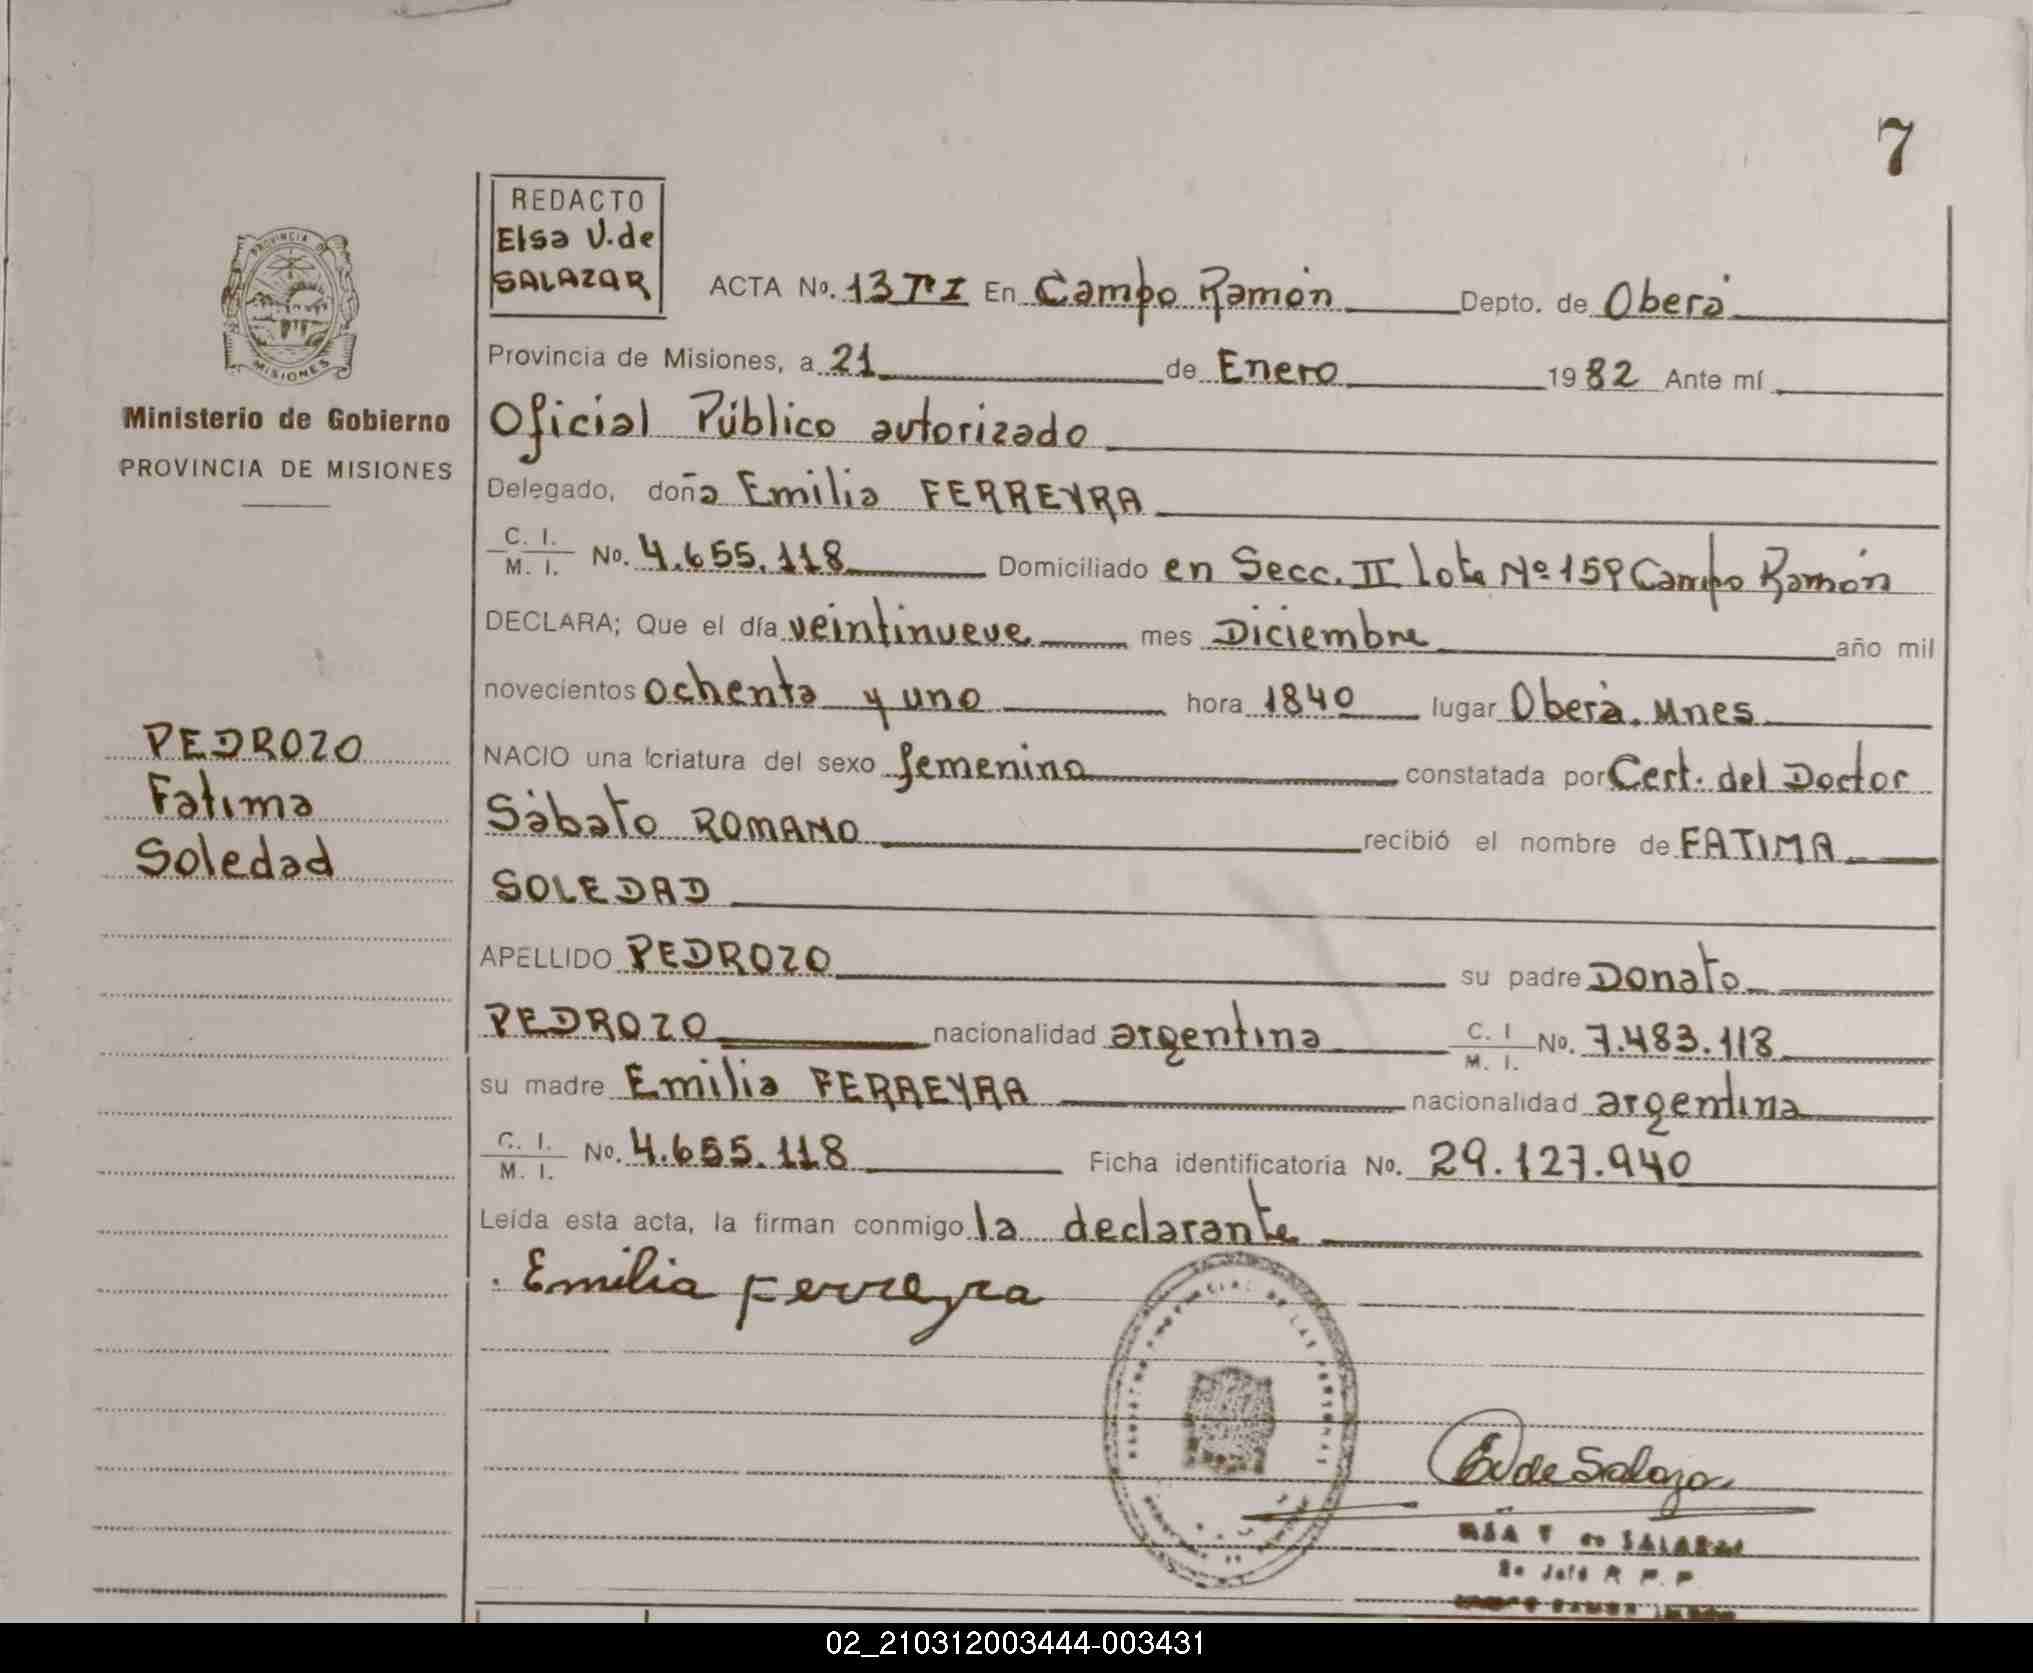 7
REDACTO
Elsa V. de
SALAZAR
ACTA No. 13 Tº I En Campo Ramón Depto. de Oberá
Provincia de Misiones, a 21 de Enero 1982 Ante mí
Oficial Público autorizado
Delegado, doña Emilia FERREYRA
C. I.
M. I. No. 4.655.118 Domiciliado en Secc. II lote Nº 159 Campo Ramón
DECLARA; Que el día veintinueve mes Diciembre año mil
novecientos ochenta y uno hora 1840 lugar Oberá. Mnes
NACIO una criatura del sexo femenino constatada por Cert. del Doctor
Sábato ROMANO recibió el nombre de FATIMA
SOLEDAD
APELLIDO PEDROZO su padre Donato
PEDROZO nacionalidad argentina C. I
M. I. No. 7.483.113
su madre Emilia FERREYRA nacionalidad argentina
C. I.
M. I. No. 4.655.118 Ficha identificatoria No. 29.127.940
Leída esta acta, la firman conmigo la declarante
Emilia Ferreyra
PROVINCIA DE
MISIONES
Ministerio de Gobierno
PROVINCIA DE MISIONES
PEDROZO
Fatima
Soledad
E V de Salazar
02_210312003444-003431